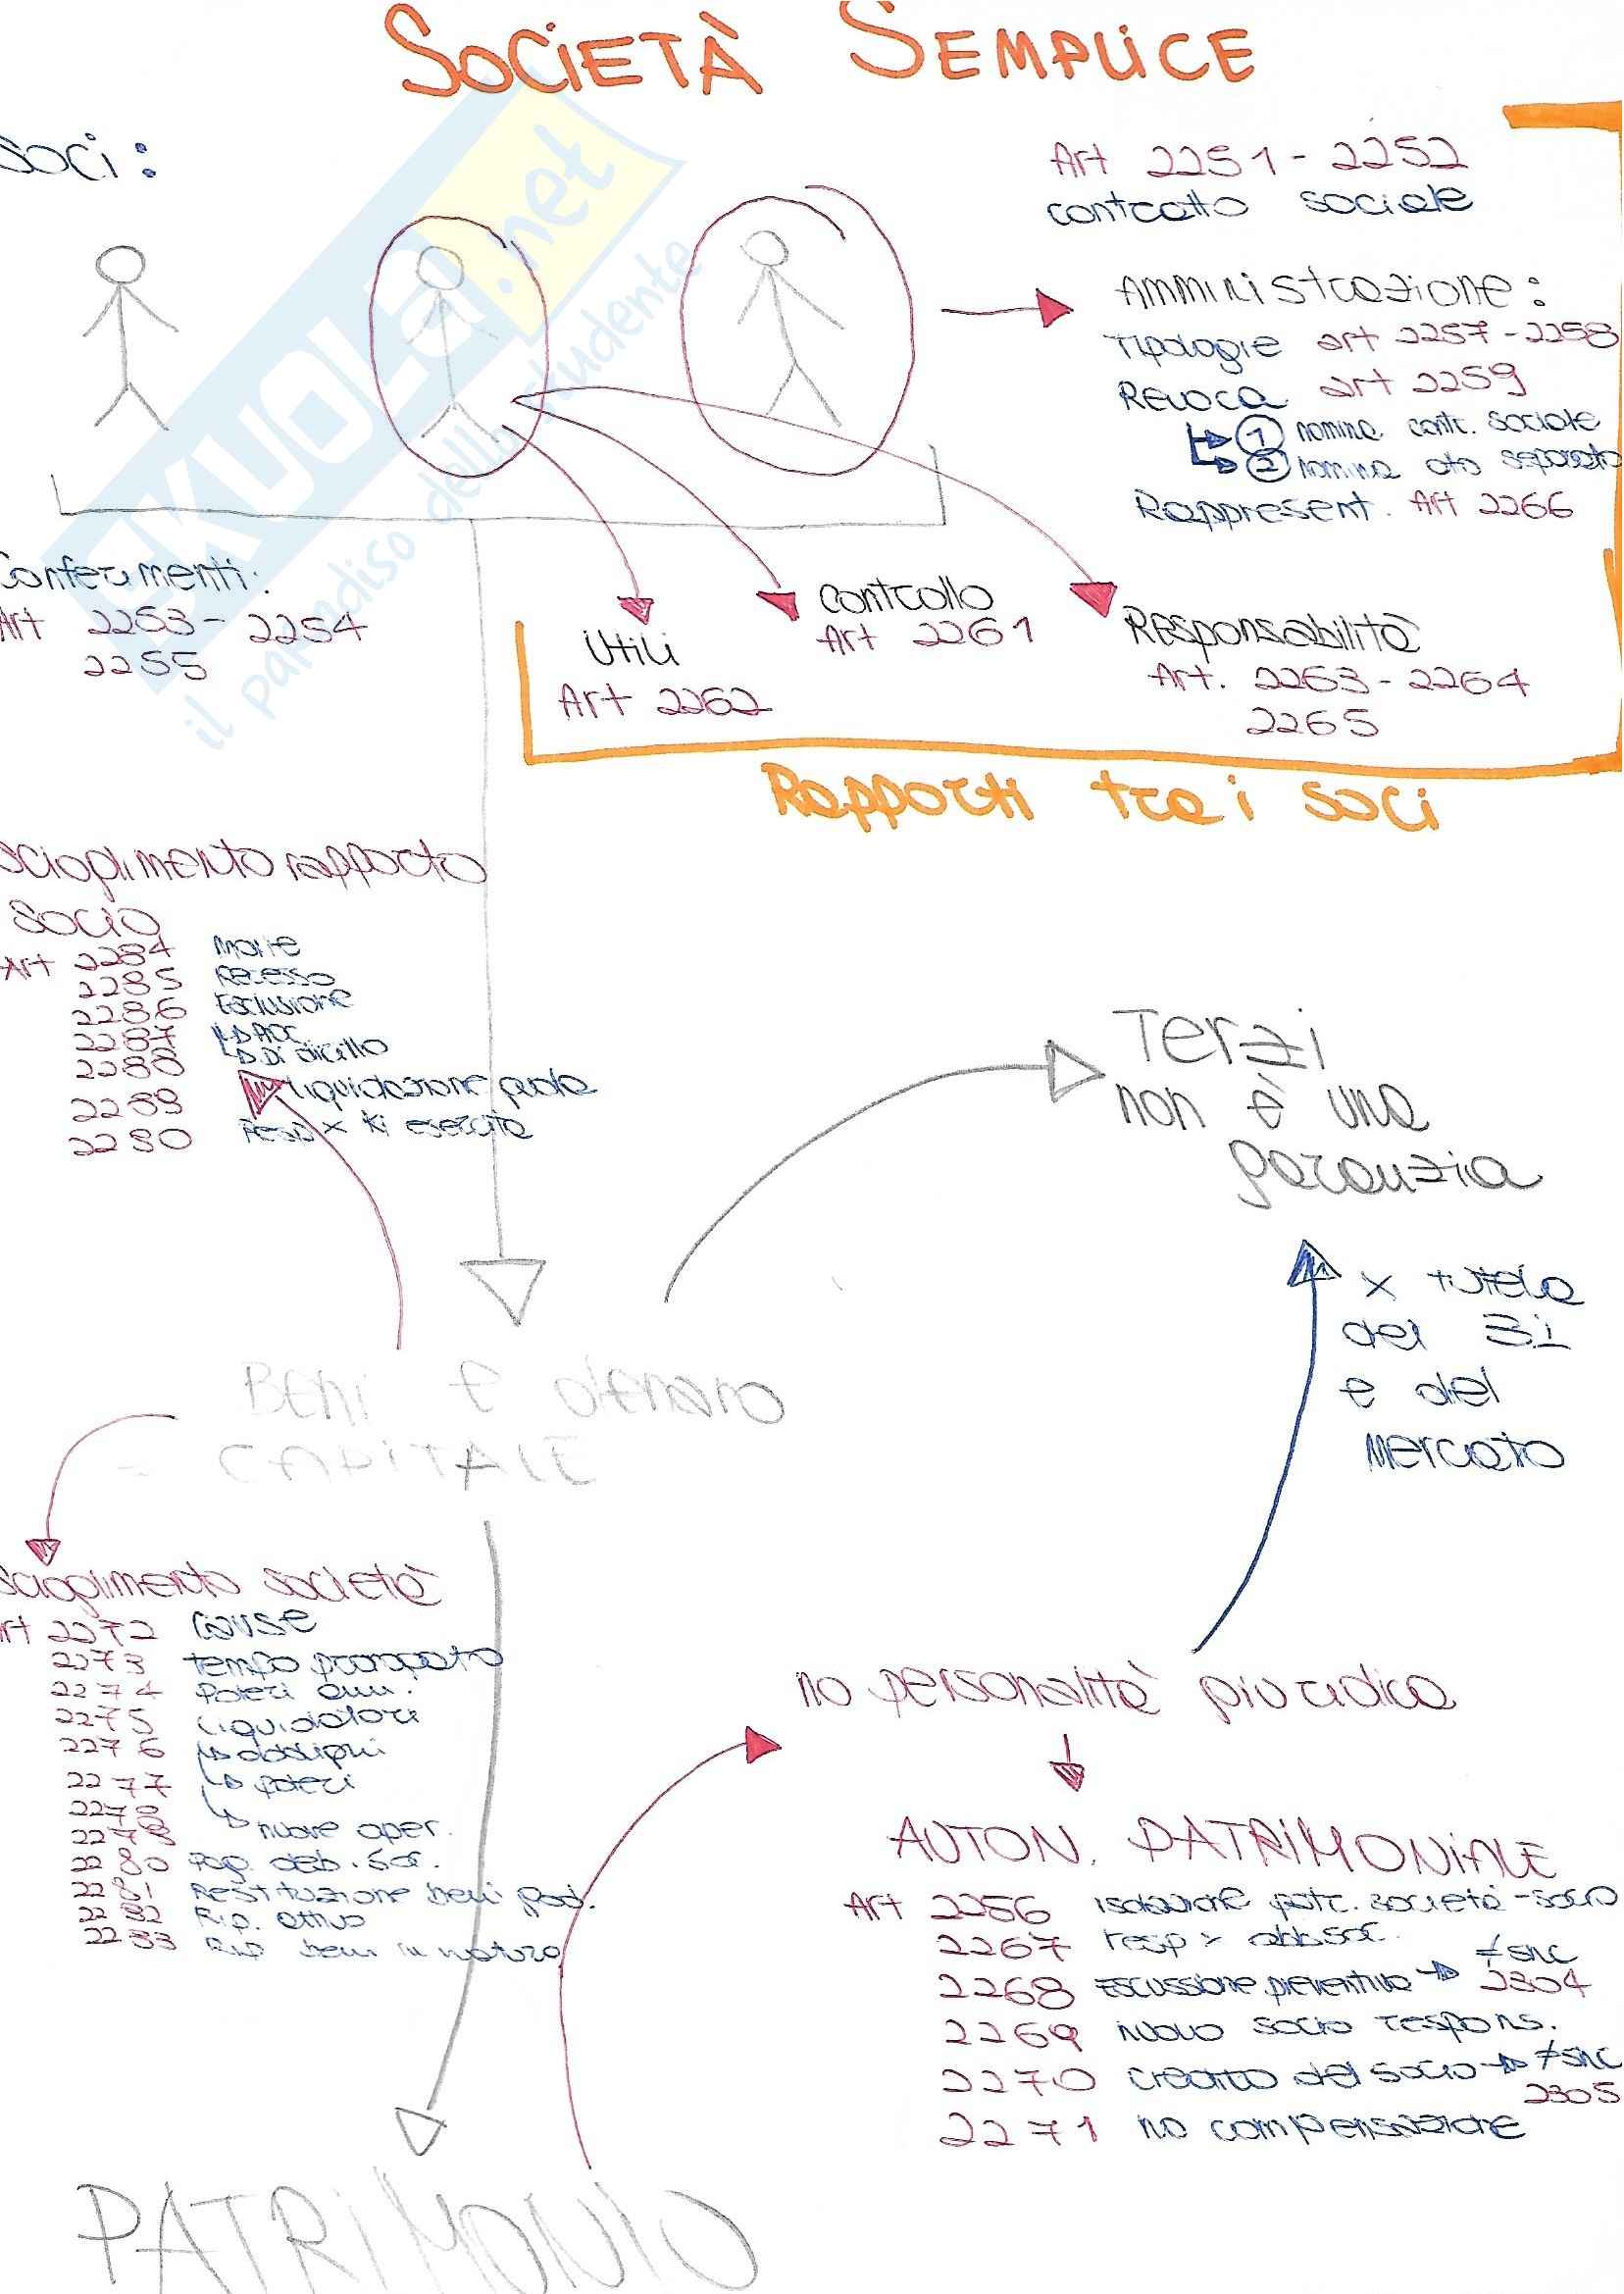 SOCIETÀ SEMPLICE
soci:
Art 2251 - 2252
contratto sociale
Amministrazione:
Tipologie art 2257 - 2258
Revoca art 2259
1 nomina contr. sociale
2 nomina atto separato
Rappresent. Art 2266
SKUOLA.net
il paradiso dello studente
Conferimenti:
Art 2253 - 2254
2255
Utili
Art 2262
Controllo
Art 2261
Responsabilità
Art. 2263 - 2264
2265
Rapporti tra i soci
scioglimento rapporto
socio
Art 2284 Morte
2285 Recesso
2286 Esclusione
2287
2288 Di diritto
2289 Liquidazione quota
2290 Resp x
Terzi
non è una
garanzia
x tutela
dei 3i
e del
mercato
Beni e denaro
= CAPITALE
scioglimento società
Art 2272 Cause
2273 tempo prorogato
2274 Poteri amm.
2275 Liquidatori
2276 obblighi
2277 poteri
2278
2279 nuove oper.
2280 Pag. deb. soc.
2281 Restituzione beni god.
2282 Rip. attivo
2283 Rip beni in natura
no personalità giuridica
AUTON. PATRIMONIALE
Art 2256 isolazione patr. società - socio
2267 resp x obb.soc.
2268 Escussione preventiva → ≠ snc 2304
2269 nuovo socio respons.
2270 creditο del socio → ≠ snc
2305
2271 no compensazione
PATRIMONIO